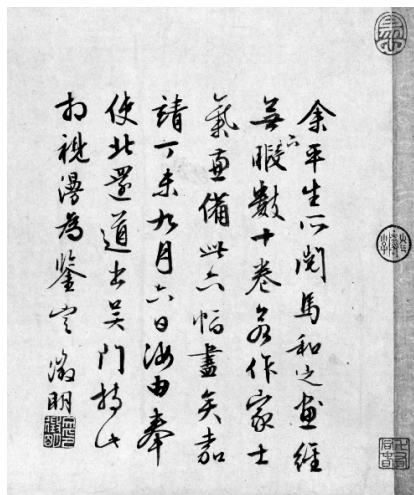 余平生所閱馬和之畫經
無暇數十卷名作家士
氣兼備此六幅盡矣嘉
靖丁未九月六日汝由奉
使北還道出吳門持此
相視漫為鑒定 徵明